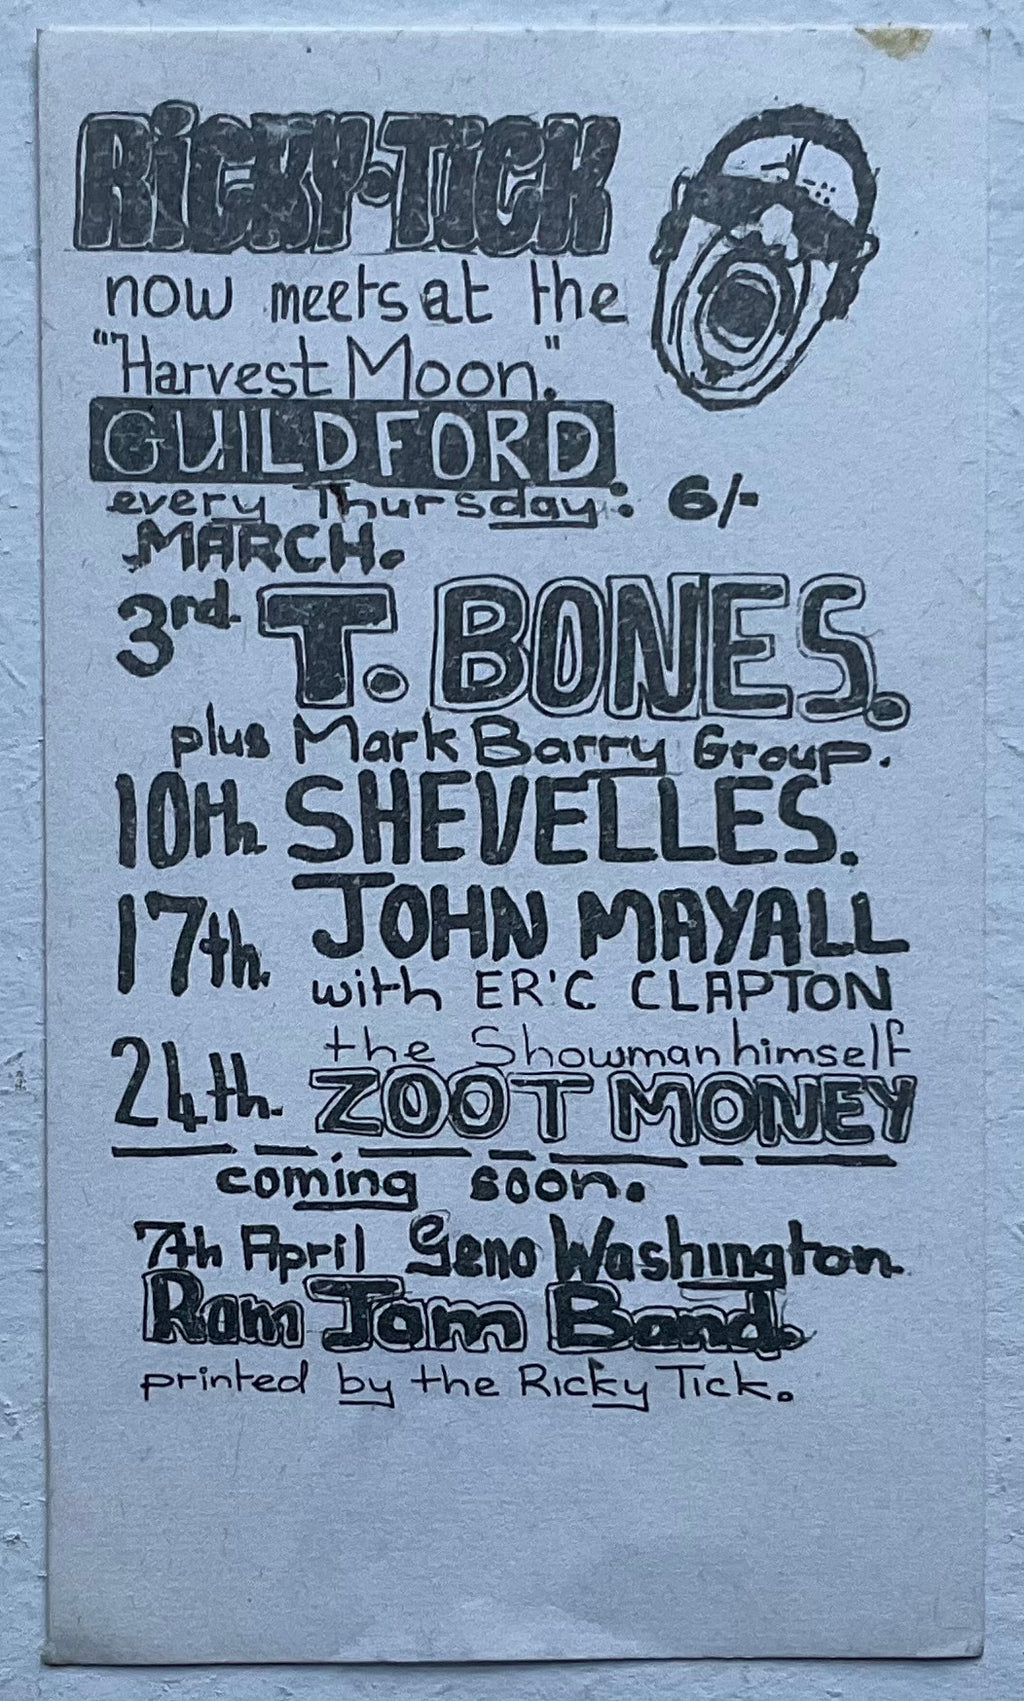 RiCKY·TiCK
now meets at the
"Harvest Moon."
GUILDFORD
every Thursday: 6/-
MARCH.
3rd. T. BONES.
plus Mark Barry Group.
10th. SHEVELLES.
17th. JOHN MAYALL
with ER'C CLAPTON
the Showman himself
24th. ZOOT MONEY
coming soon.
7th April Geno Washington.
Ram Jam Band.
printed by the Ricky Tick.